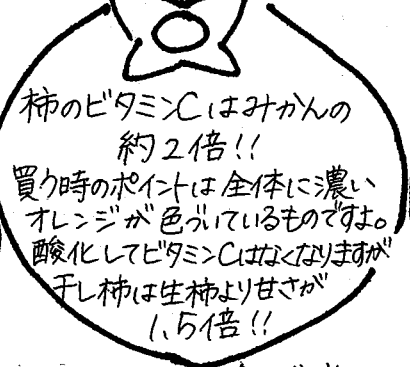 柿のビタミンCはみかんの
約2倍!!
買う時のポイントは全体に濃い
オレンジが色づいているものですよ。
酸化してビタミンCはなくなりますが
干し柿は生柿より甘さが
1.5倍!!